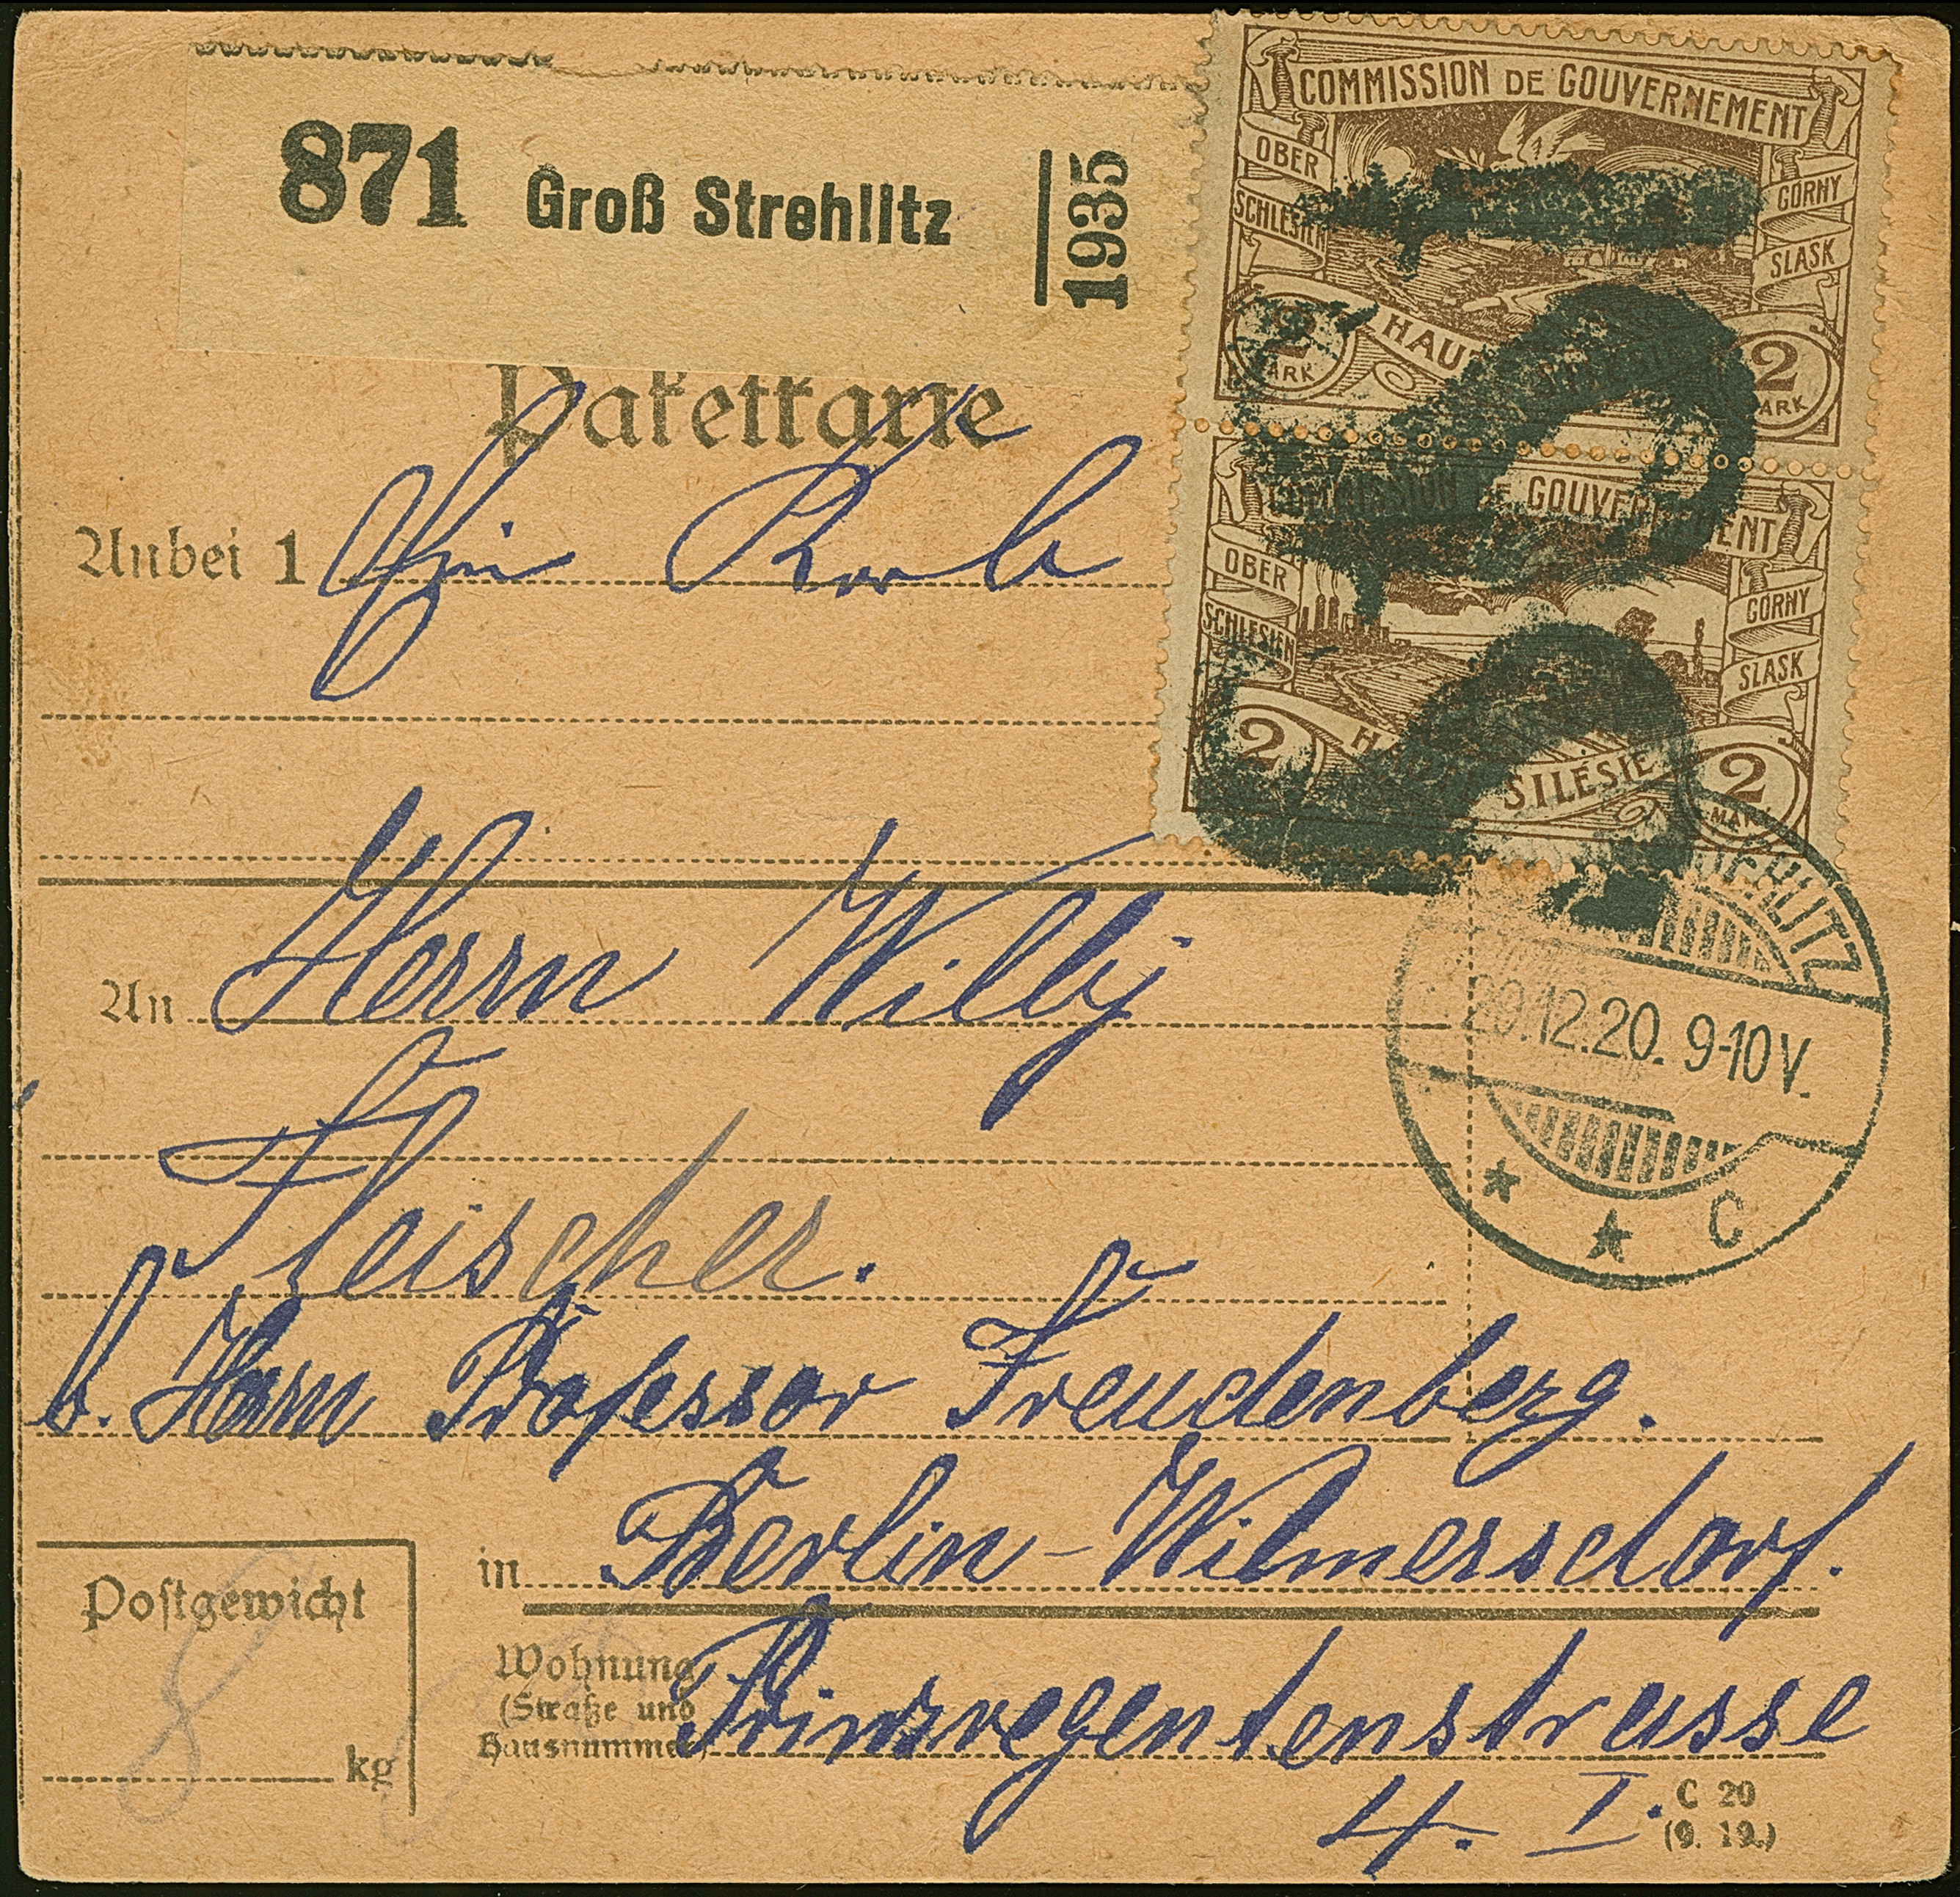 871 Groß Strehlitz
1935
COMMISSION DE GOUVERNEMENT
OBER
SCHLESIEN
GORNY
SLASK
2
MARK
2
MARK
COMMISSION DE GOUVERNEMENT
OBER
SCHLESIEN
GORNY
SLASK
2
SILÉSIE
2
MARK
Paketkarte
Anbei 1 Ein Korb
An Herrn Willy
29.12.20. 9-10V.
* * C
Fleischer.
b. Herrn Professor Freudenberg.
in Berlin-Wilmersdorf.
Postgewicht
8
kg
Wohnung
(Straße und
Hausnummer)
Prinzregentenstrasse
4. I.
C 20
(9. 19.)